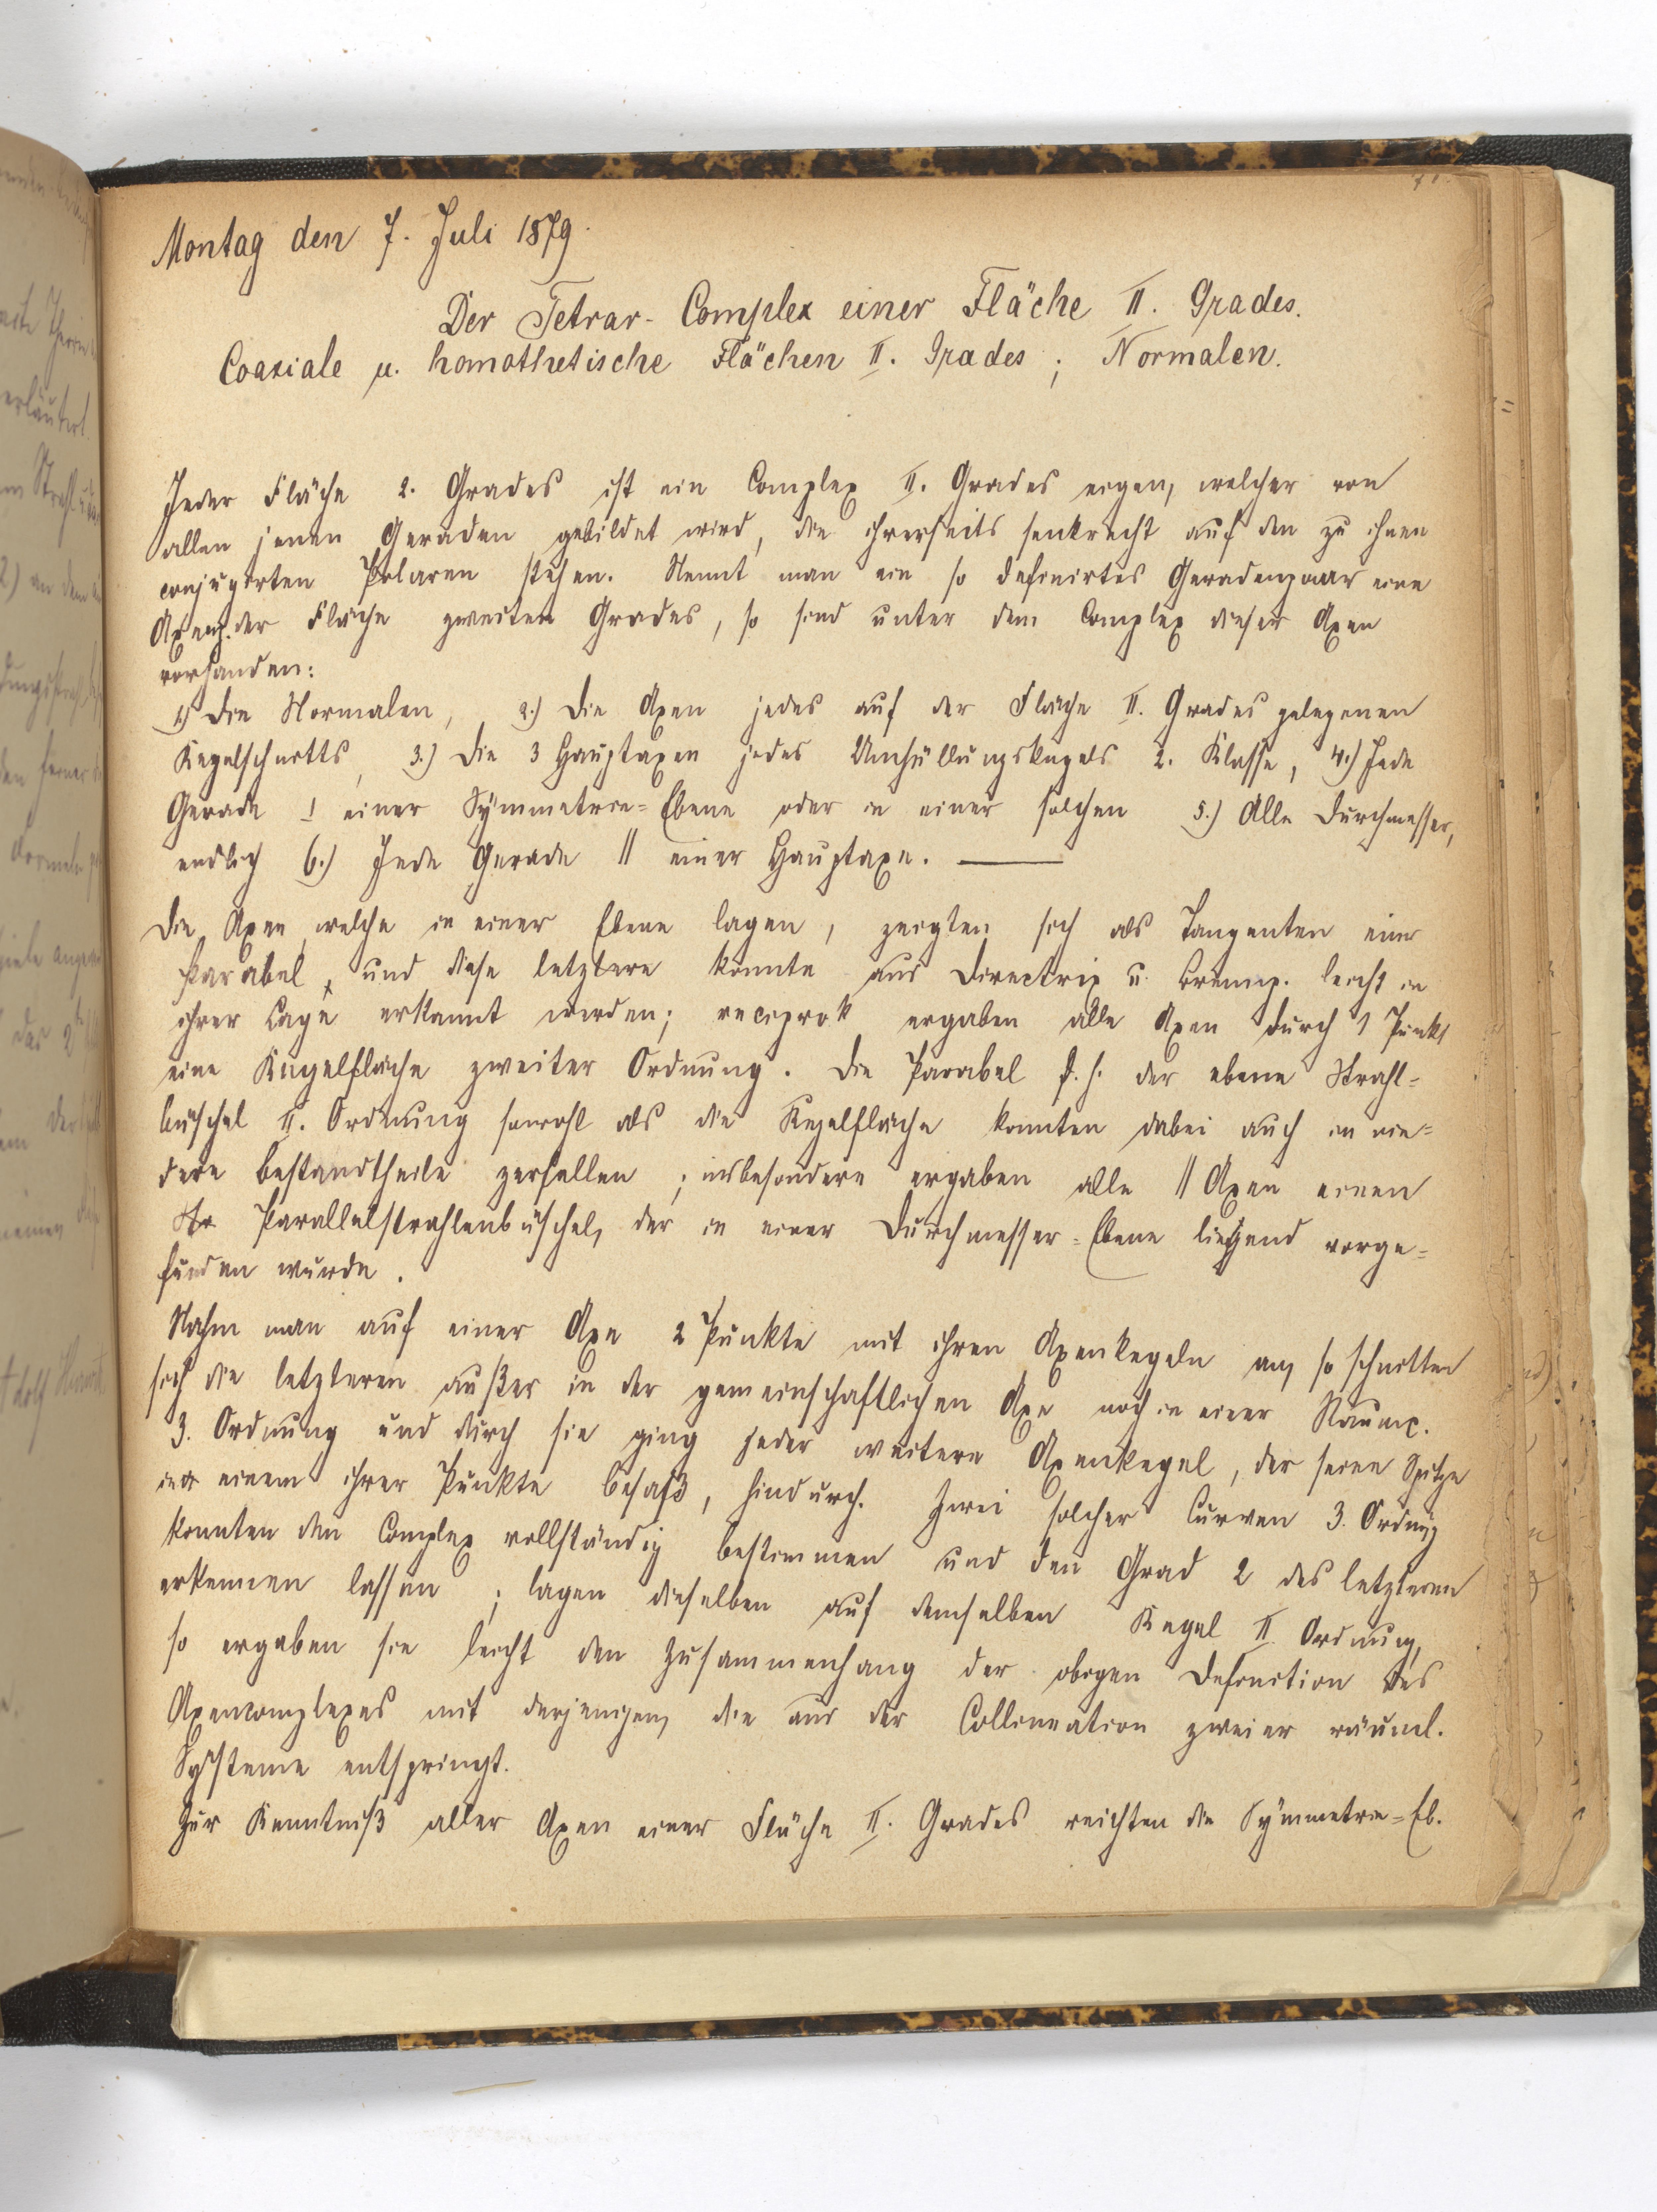 Montag den 7. Juli 1879.
Der Tetrar-Complex einer Fläche II. Grades.
Coaxiale u. homothetische Flächen II. Grades; Normalen.
Jeder Fläche 2. Grades ist ein Complex II. Grades eigen, welcher von
allen jenen Geraden gebildet wird, die ihrerseits senkrecht auf den zu ihnen
conjugirten Polaren stehen. Nennt man ein so definirtes Geradenpaar eine
der Fläche zweiten Grades, so sind unter dem Complex dieser Axen
vorhanden:
1.) Die Normalen, 2.) Die Axen jedes auf der Fläche II. Grades gelegenen
Kegelschnitts, 3.) Die 3 Hauptaxen jedes Umhüllungskegels 2. Klasse, 4.) Jede
Gerade ⊥ einer Symmetrie=Ebene oder in einer solchen 5.) Alle Durchmesser,
endlich 6.) Jede Gerade || einer Hauptaxe. —
Die Axen, welche in einer Ebene lagen, zeigten sich als Tangenten einer
Parabel, und diese letztere konnte aus Directrix u. Brennp. leicht in
ihrer Lage erkannt werden; reciprok ergaben alle Axen durch 1 Punkt
eine Kegelfläche zweiter Ordnung. Die Parabel d. h. der ebene Strahl=
büschel II. Ordnung sowohl als die Kegelfläche konnten dabei auch in nie=
dere Bestandtheile zerfallen; insbesondere ergaben alle || Axen einen
Parallelstrahlenbüschel, der in einer Durchmesser=Ebene liegend vorge=
funden wurde.
Nahm man auf einer Axe 2 Punkte mit ihren Axenkegeln an, so schnitten
sich die letzteren außer in der gemeinschaftlichen Axe noch in einer Raumc.
3. Ordnung und durch sie ging jeder weitere Axenkegel, der seine Spitze
in einem ihrer Punkte besaß, hindurch. Zwei solcher Curven 3. Ordnung
konnten den Complex vollständig bestimmen und den Grad 2 des letzteren
erkennen lassen; lagen dieselben auf demselben Kegel II. Ordnung,
so ergaben sie leicht den Zusammenhang der obigen Definition des
Axencomplexes mit derjenigen, die aus der Collineation zweier räuml.
Systeme entspringt.
Zur Kenntniß aller Axen einer Fläche II. Grades reichten die Symmetrie=Eb.